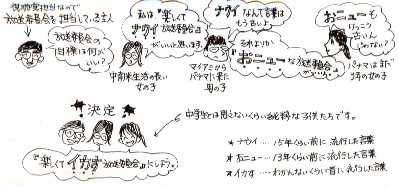 視聴覚担当なので
放送委員会を担当している主人
放送委員会の
目標は何が
いい?
私は『楽しくて
ナウイ放送委員会』が
いいと思います。
中南米生活の長い
女の子
ナウイなんて言葉は
もう古いよ。
それよりか
ボニュー
放送委員会が
いい。
マイアミから
パナマに来た
男の子
もけっこう
古いんじゃない?
パナマはまだ
年の女の子
決定
『楽しくてイカす放送委員会』にしよう。
中学生とは思えないくらい純粋な子供たちです。
★ナウイ…15年くらい前に流行した言葉
★ボニュー…13年くらい前に流行した言葉
★イカす…わかんないくらい前に流行した言葉